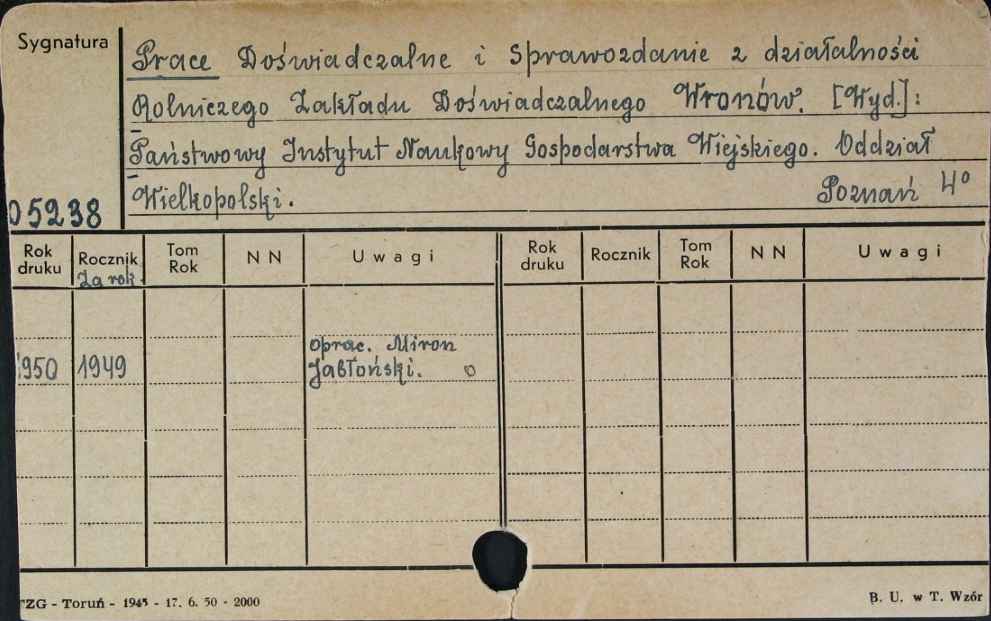 Sygnatura
Prace Doświadczalne i Sprawozdanie z działalności
Rolniczego Zakładu Doświadczalnego Wronów. [Wyd.]:
Państwowy Instytut Naukowy Gospodarstwa Wiejskiego. Oddział
Wielkopolski. Poznań 4°
05238
Rok druku Rocznik Za rok Tom Rok N N Uwagi Rok druku Rocznik Tom Rok N N Uwagi
oprac. Miron
1950 1949 Jabłoński. o
TZG - Toruń - 1945 - 17. 6. 50 - 2000 B. U. w T. Wzór